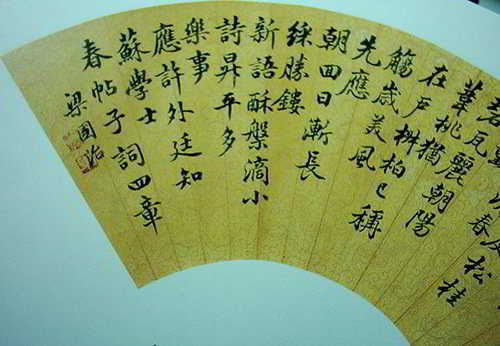 瓦麗朝陽
葦桃猶
在戶椒柏已稱
觴歲美風
先應
朝回日漸長
綵勝鏤
新語酥槃滴小
詩昇平多
樂事
應許外廷知
蘇學士
春帖子詞四章
梁國治